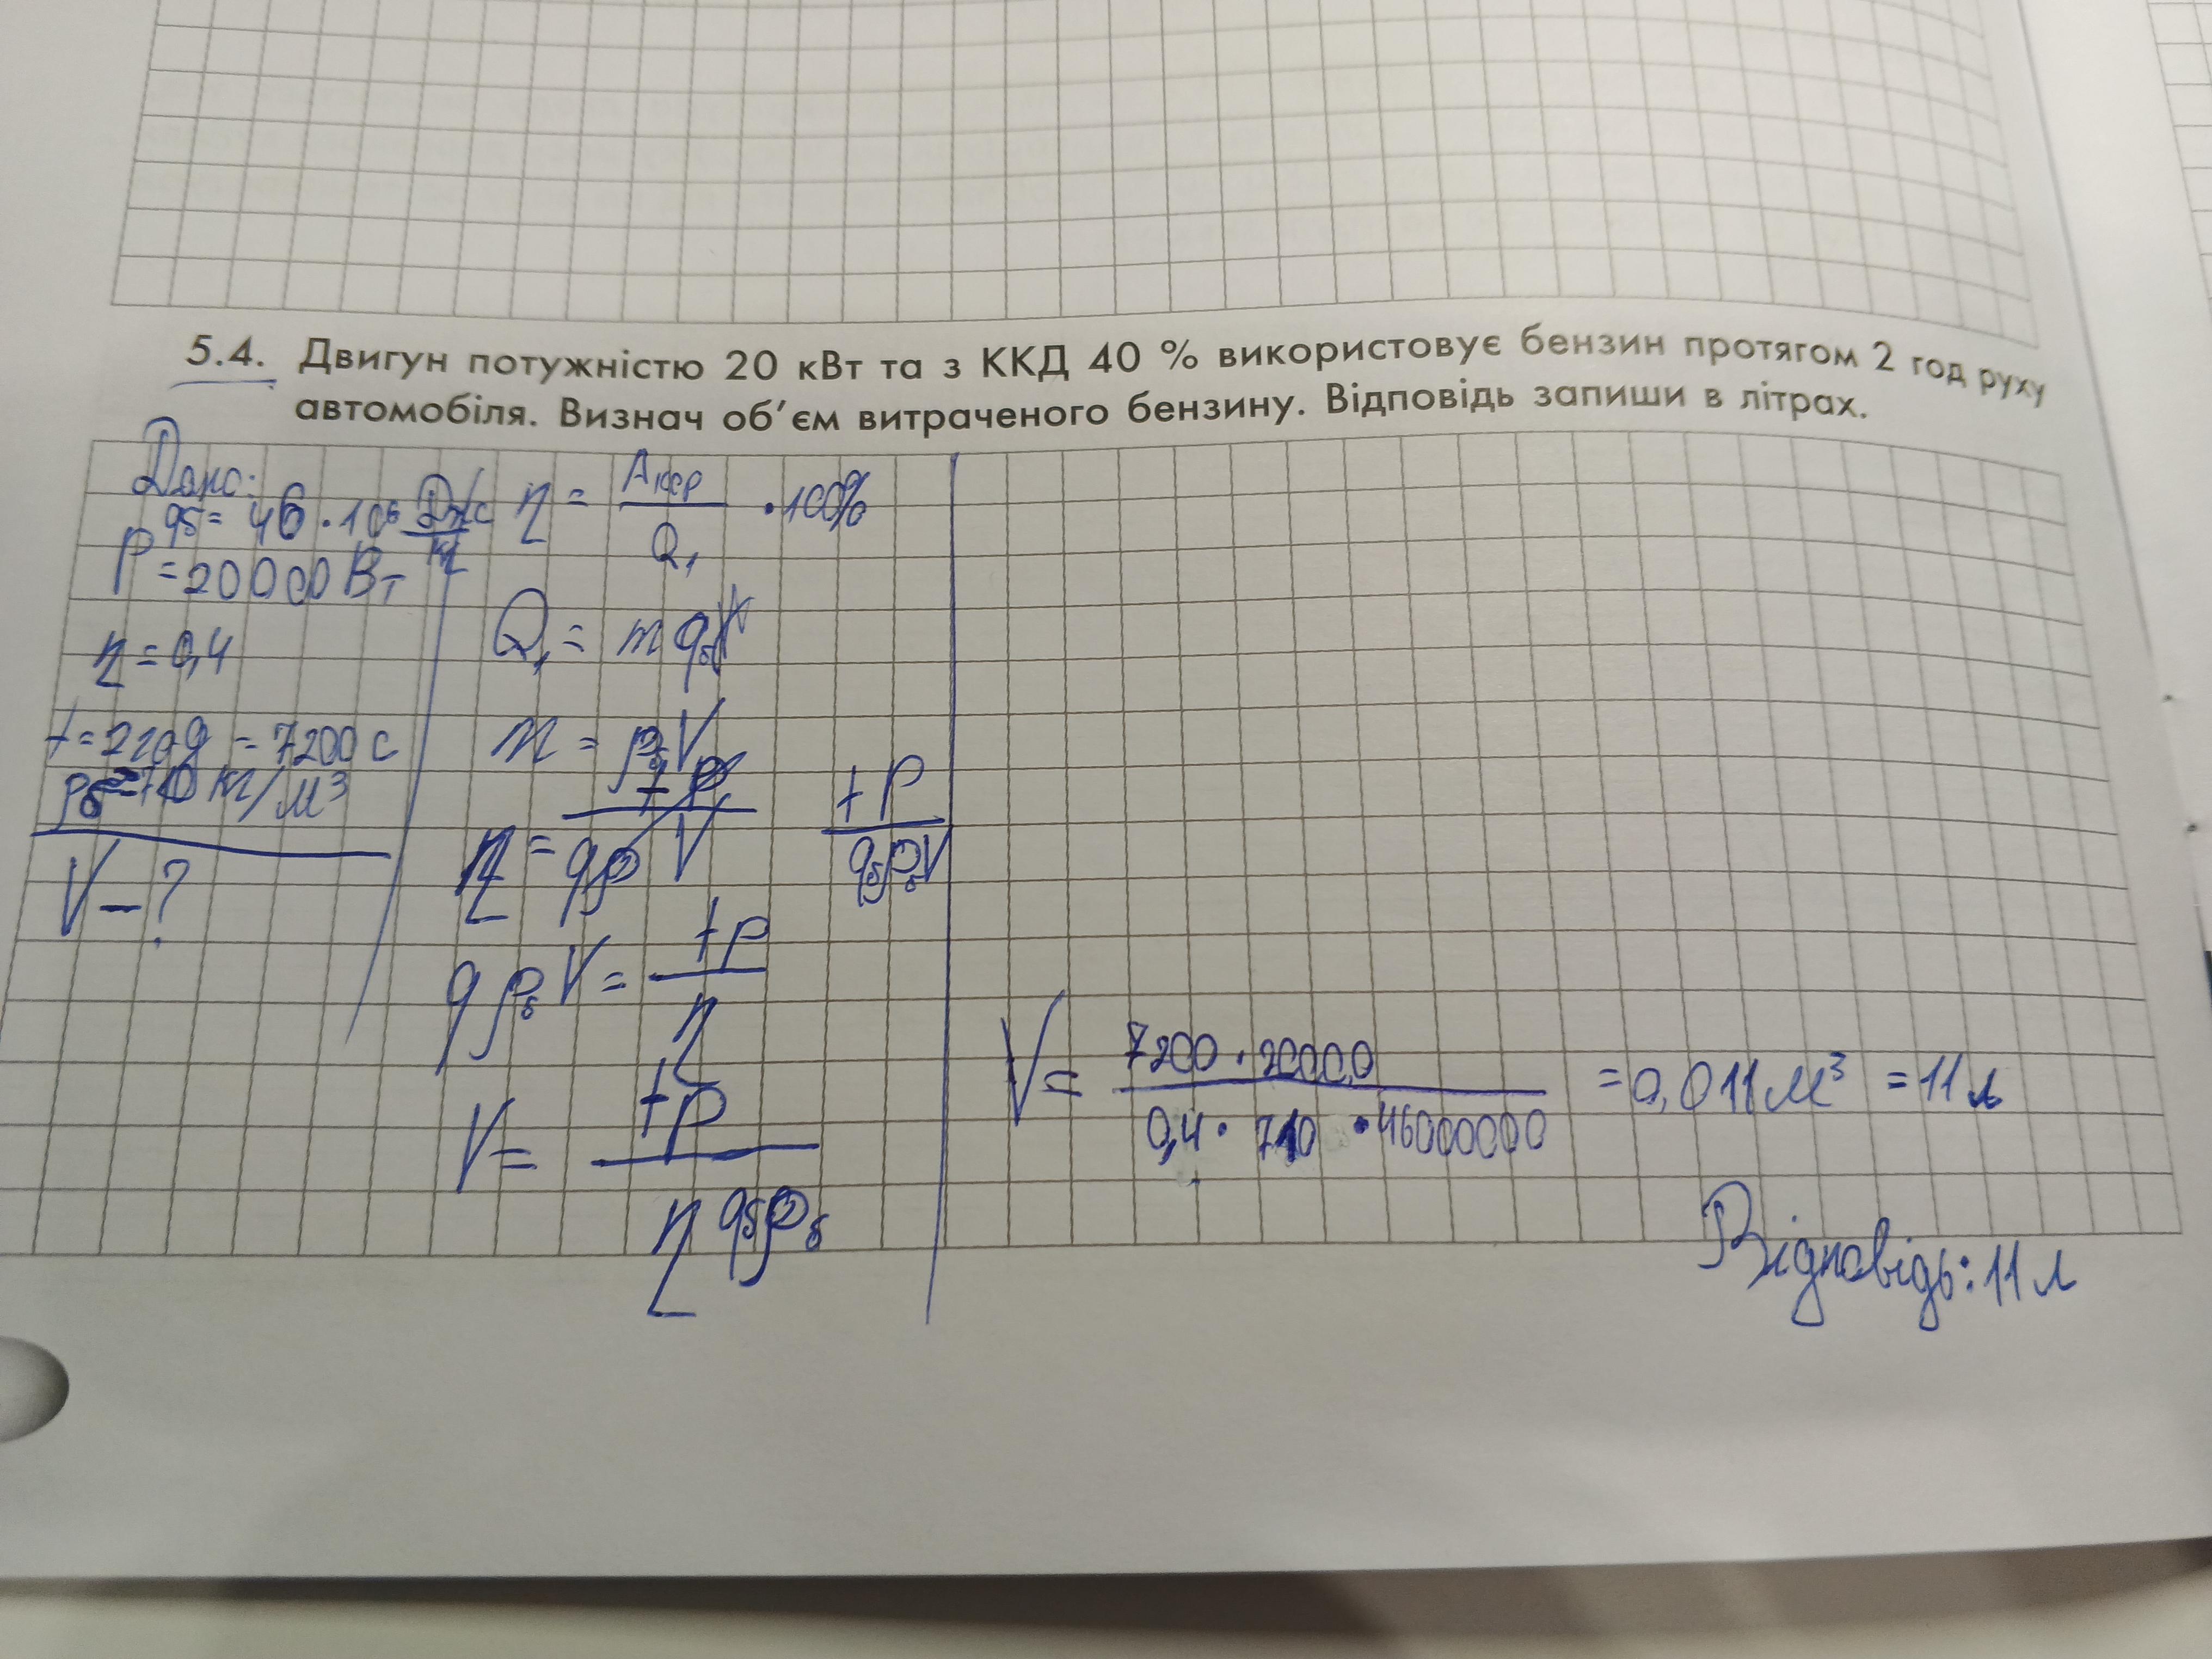 5.4. Двигун потужністю 20 кВт та з ККД 40 % використовує бензин протягом 2 год руху
автомобіля. Визнач об’єм витраченого бензину. Відповідь запиши в літрах.
Дано:
qб = 46 · 10⁶ Дж/кг
P = 20000 Вт
η = 0,4
t = 2 год = 7200 с
ρб = 710 кг/м³
V – ?
η = Aкор / Q₁ · 100%
Q₁ = m qб
m = ρб V
η = tP / qρV
tP / qбρбV
qρбV = tP / η
V = tP / ηqбρб
V = 7200 · 20000 / 0,4 · 710 · 46000000 = 0,011 м³ = 11 л
Відповідь: 11 л